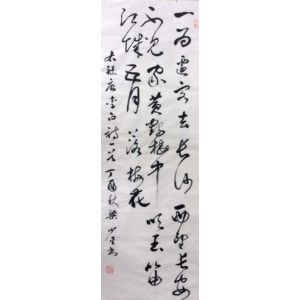 一为迁客去长沙西望长安
不见家黄鹤楼中吹玉笛
江城五月落梅花
太白唐李白诗一首丁酉秋梁少金书